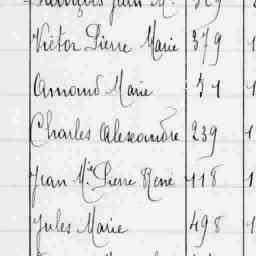 François Jean M.
Victor Pierre Marie 379 1
Amand Marie 71 1
Charles Alexandre 239 1
Jean M.ie Pierre René 118 1
Jules Marie 498 1